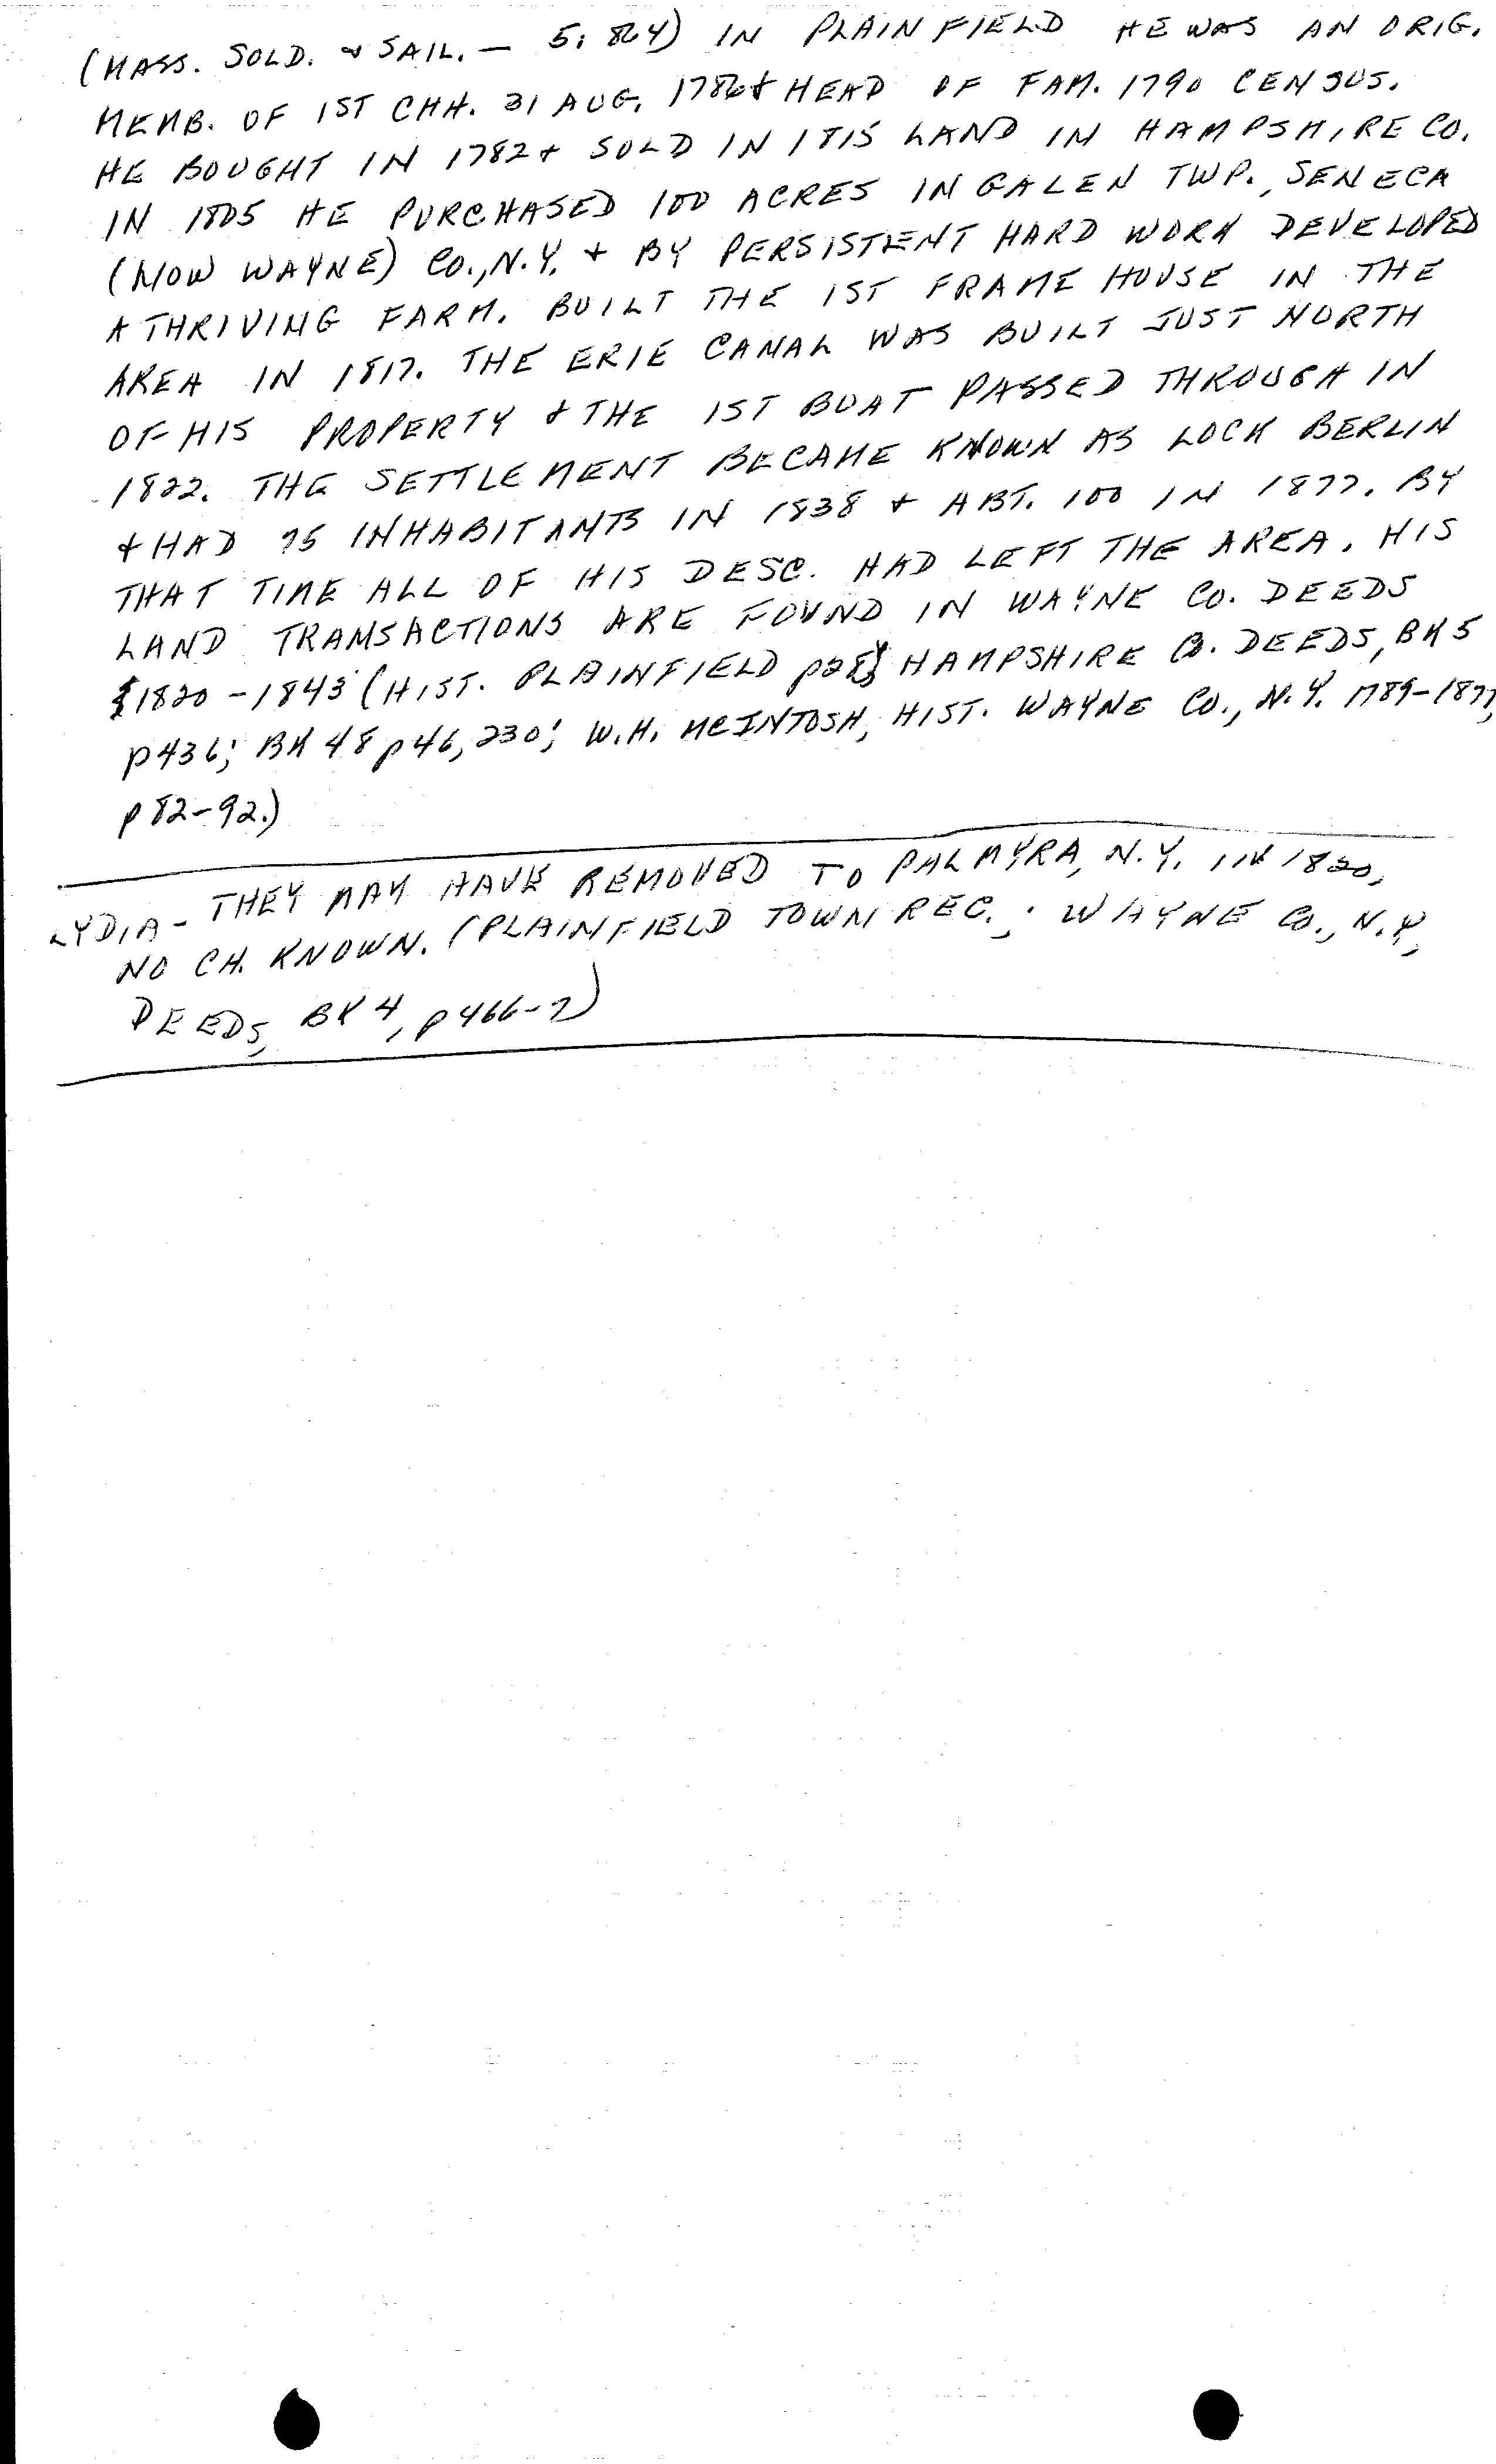 (MASS. SOLD. & SAIL. — 5: 864) IN PLAINFIELD HE WAS AN ORIG.
MEMB. OF 1ST CHH. 31 AUG. 1786 & HEAD OF FAM. 1790 CENSUS.
HE BOUGHT IN 1782 & SOLD IN 1815 LAND IN HAMPSHIRE CO.
IN 1805 HE PURCHASED 100 ACRES IN GALEN TWP., SENECA
(NOW WAYNE) CO., N.Y. & BY PERSISTENT HARD WORK DEVELOPED
A THRIVING FARM. BUILT THE 1ST FRAME HOUSE IN THE
AREA IN 1817. THE ERIE CANAL WAS BUILT JUST NORTH
OF HIS PROPERTY & THE 1ST BOAT PASSED THROUGH IN
1822. THE SETTLEMENT BECAME KNOWN AS LOCK BERLIN
& HAD 75 INHABITANTS IN 1838 & ABT. 100 IN 1877. BY
THAT TIME ALL OF HIS DESC. HAD LEFT THE AREA. HIS
LAND TRANSACTIONS ARE FOUND IN WAYNE CO. DEEDS
1820-1843 (HIST. PLAINFIELD HAMPSHIRE CO. DEEDS, BK 5
p436; BK 48 p46, 230; W.H. MCINTOSH, HIST. WAYNE CO., N.Y. 1789-1877,
p 82-92.)
LYDIA - THEY MAY HAVE REMOVED TO PALMYRA, N.Y. IN 1820.
NO CH. KNOWN. (PLAINFIELD TOWN REC.; WAYNE CO., N.Y.,
DEEDS, BK 4, p 466-7)